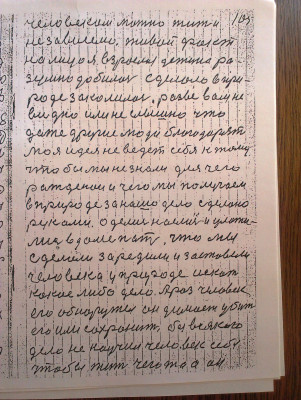 105
человеком можно жить и
независемо, живой факт
на лицо я взрослел детина ра-
зумно добился сделаю в при-
роде закопился, разве вам не
видно или не слышно что
даже другие люди благодарят
моя идея не ведет себя к тому
что бы мы не знали для чего
рождении и чего мы получаем
в природе за нашо дело сделано
руками. Одели наелись и
лица в доме пату, что мы
сделали зародили и заставели
человека у природе искать
какое либо дело. А раз человек
его обнаружил он думает убить
его или сохранить бы всякого
дело не научил человек себя
чтобы жит чего то а он